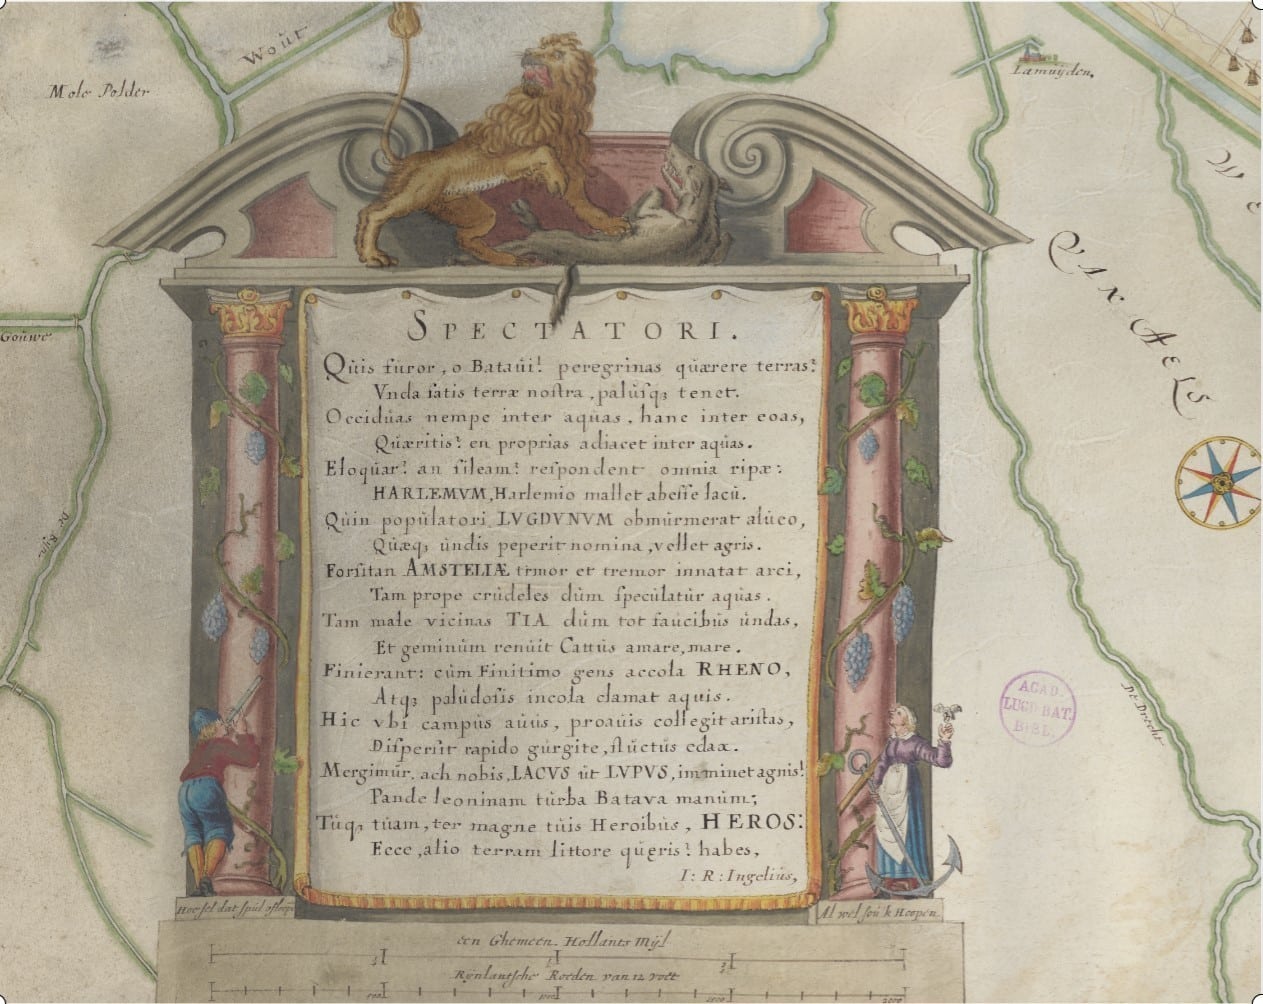 Woút
Mole Polder
Lamuÿden.
Goúwe
QVAXAELS
De Drecht
ACAD.
LUGD. BAT.
BIBL.
SPECTATORI.
Qùis fùror, o Bataùi! peregrinas quærere terras?
Vnda satis terræ nostra, palùsq; tenet.
Occidùas nempe inter aqùas, hanc inter eoas,
Qùæritis? en proprias adiacet inter aqùas.
Eloqùar? an sileam? respondent omnia ripæ:
HARLEMVM, Harlemio mallet abesse lacù.
Qùin popùlatori LVGDVNVM obmùrmerat alùco,
Qùæq; ùndis peperit nomina, vellet agris.
Forsitan AMSTELIÆ timor et tremor innatat arci,
Tam prope crùdeles dùm specùlatùr aqùas.
Tam male vicinas TIA dùm tot faùcibùs ùndas,
Et geminùm renùit Cattùs amare, mare.
Finierant: cùm Finitimo gens accola RHENO,
Atq; palùdosis incola clamat aquis.
Hic vbi campùs aùùs, proaùis collegit aristas,
Dispersit rapido gùrgite, flùctùs edax.
Mergimùr, ach nobis, LACVS ùt LVPVS, imminet agnis!
Pande leoninam tùrba Batava manùm;
Tùq; tùam, ter magne tùis Heroibùs, HEROS:
Ecce, alio terram littore qùeris? habes,
I: R: Ingeliùs,
Hoe sel dat spùl
Al wel soù k Hoopen.
een Ghemeen Hollants Mÿl
Rÿnlantsche Roeden van 12 voet
500
1000
1500
2000